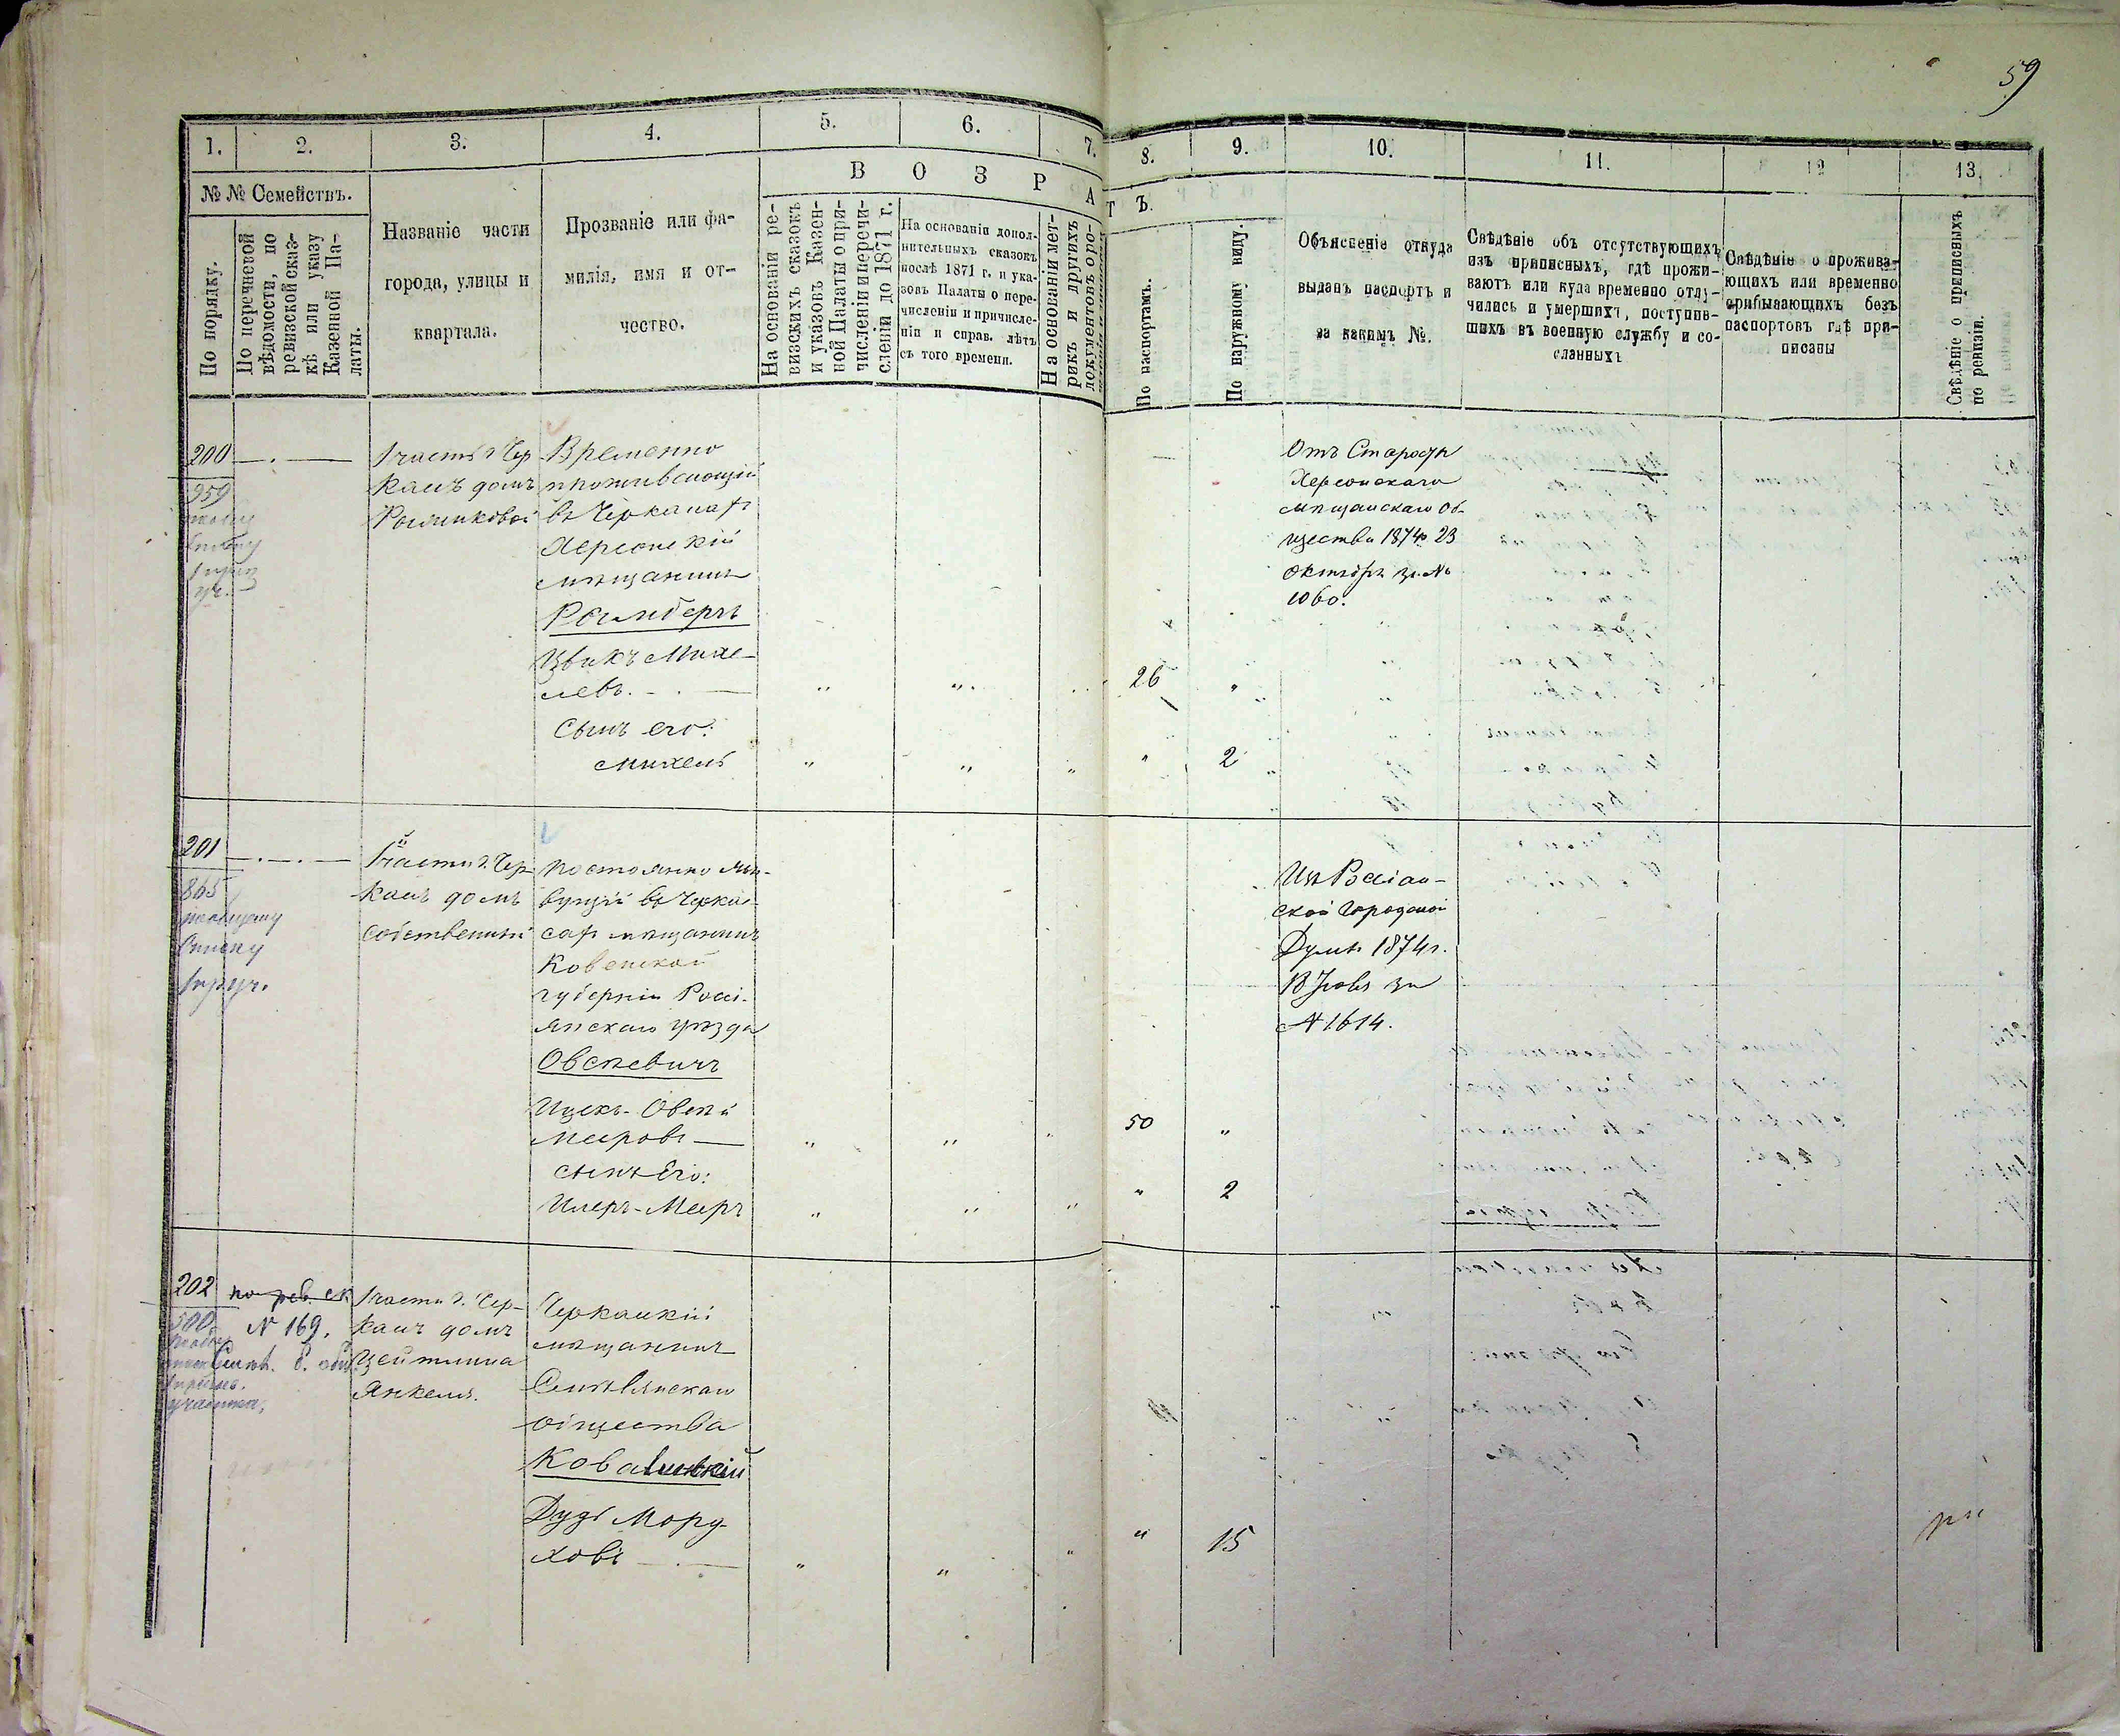 59
1. 2. 3. 4. 5. 6. 7. 8. 9. 10. 11. 12 13.
№ № Семействъ.
По порядку.
По перечневой
вѣдомости, по
ревизской сказ-
кѣ или указу
Казенной Па-
латы.
Названіе части
города, улицы и
квартала.
Прозваніе или фа-
милія, имя и от-
чество.
ВОЗРАТЪ.
На основаніи ре-
визскихъ сказокъ
и указовъ Казен-
ной Палаты о при-
численіи и перечи-
сленіи до 1871 г.
На основаніи допол-
нительныхъ сказокъ
послѣ 1871 г. и ука-
зовъ Палаты о пере-
численіи и причисле-
ніи и справ. лѣтъ
съ того времени.
На основаніи мет-
рикъ и другихъ
документовъ о ро-
По паспортамъ.
По наружному виду.
Объясненіе откуда
выданъ паспортъ и
за какимъ №.
Свѣдѣніе объ отсутствующихъ
изъ приписныхъ, гдѣ прожи-
ваютъ или куда временно отлу-
чились и умершихъ, поступив-
шихъ въ военную службу и со-
сланныхъ
Свѣдѣніе о прожива-
ющихъ или временно
прибывающихъ безъ
паспортовъ гдѣ при-
писаны
Свѣдѣніе о приписныхъ
по ревизіи.
200
959
1 часть г. Чер
касъ домъ
Временно
проживающій
въ Черкасахъ
Херсонскій
мѣщанинъ
Цвикъ Михе-
левъ.
26
Сынъ его:
Михель
2
Отъ Старосты
Херсонскаго
мѣщанскаго об-
щества 1874 23
октября за №
1060.
201
865
Списку
1 части г. Чер
касъ домъ
собственный
постоянно жи-
вущій въ Черка-
сахъ мѣщанинъ
Ковенской
губерніи Россі-
янскаго уѣзда
Овсѣевичъ
Ицекъ-Овсѣй
Мееровъ
50
сынъ Его:
Меръ
2
Изъ Россіан-
ской Городской
Думы 1874 г.
за
№ 1614.
202
по рев. ск
500
№ 169.
1 части г. Чер-
касъ домъ
Цейтлина
Янкеля.
Черкаскій
мѣщанинъ
Смѣлянскаго
общества
Дудь Морду-
ховъ
15